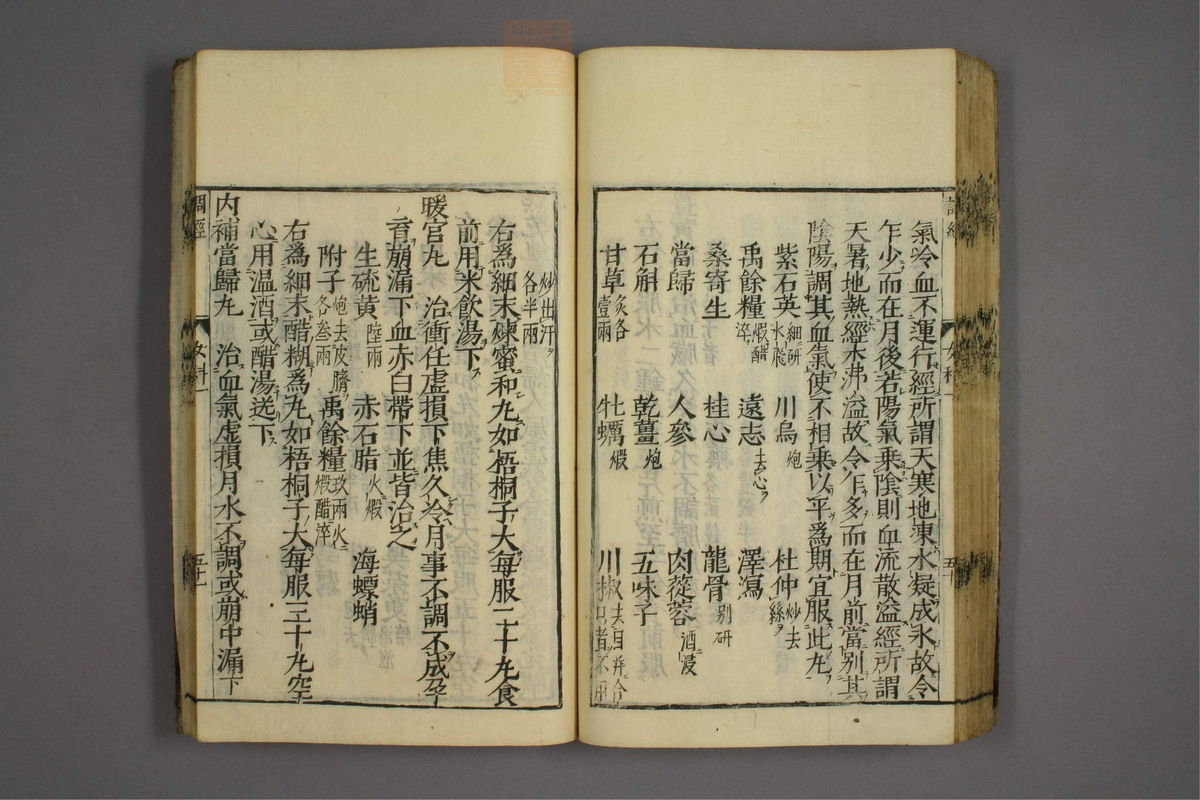 氣冷血不運行經所謂天寒地凍水凝成氷故令
乍少而在月後若陽氣乗陰則血流散溢經所謂
天暑地熱經水沸溢故令乍多而在月前當别其
陰陽調其血氣使不相乗以平爲期宜服此丸
紫石英細研水飛 川烏炮 杜仲炒去絲
禹餘糧煆醋淬 遠志去心 澤瀉
桑寄生 桂心 龍骨别研
當歸 人參 肉蓯蓉酒浸
石斛 乾薑炮 五味子
甘草炙各壹兩 牡蠣煆 川椒去目并合口者不用
炒出汗各半兩
右爲細末煉蜜和丸如梧桐子大每服二十丸食
前用米飲湯下
暖宫丸 治衝任虚損下焦久冷月事不調不成孕
育崩漏下血赤白帶下並皆治之
生硫黄陸兩 赤石脂火煆 海螵蛸
附子炮去皮臍各叁兩 禹餘糧玖兩火煆醋淬
右爲細末醋糊爲丸如梧桐子大每服三十丸空
心用温酒或醋湯送下
内補當歸丸 治血氣虚損月水不調或崩中漏下
調經
女科一
五十一